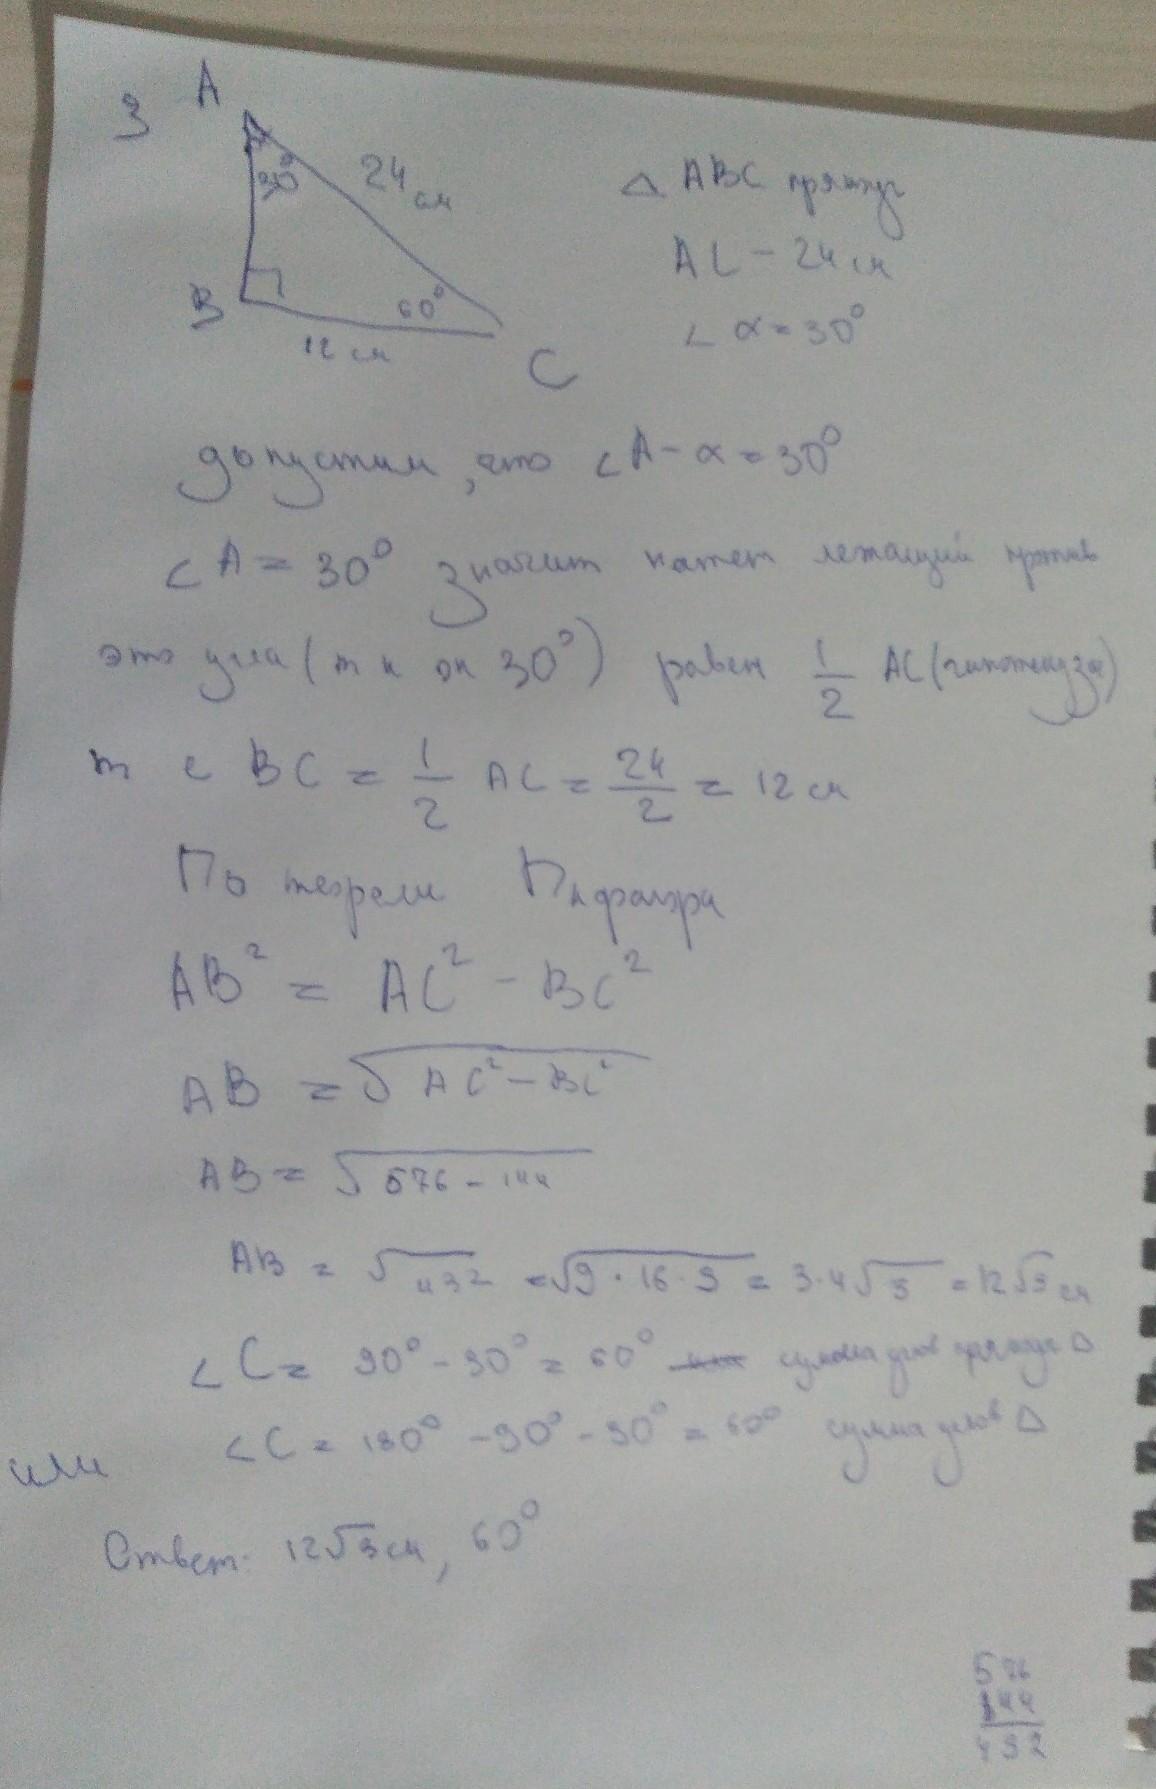 3
A
30°
24 см
B
60°
12 см
C
△ ABC прямуг
AC - 24 см
∠ α = 30°
допустим, что ∠A - α = 30°
∠A = 30° значит катет лежащий против
это угла (т к он 30°) равен 1/2 AC (гипотенуза)
т е BC = 1/2 AC = 24/2 = 12 см
По теореми Пифагора
AB² = AC² - BC²
AB = √(AC² - BC²)
AB = √(576 - 144)
AB = √432 = √(9 · 16 · 3) = 3 · 4√3 = 12√3 см
∠C = 90° - 30° = 60° сумма углов прямуг △
или ∠C = 180° - 90° - 30° = 60° сумма углов △
Ответ: 12√3 см, 60°
576
144
432